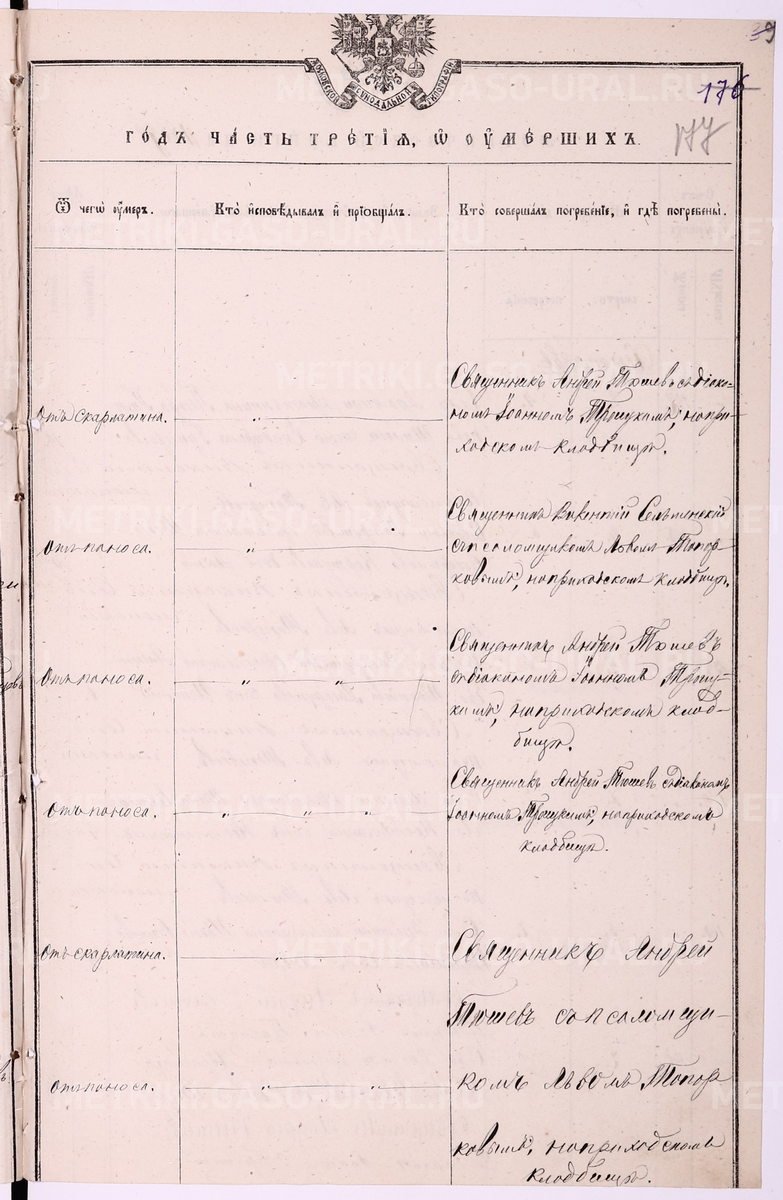 39
176
177
МОСКОВСКОЙ СѴНОДАЛЬНОЙ ТИПОГРАФІИ
ГО́ДЪ ЧА́СТЬ ТРЕ́ТІЯ, Ѡ҆ ОУ҆МЕ́РШИХЪ.
Ѿ чегѡ̀ оу҆́меръ.
Кто̀ и҆сповѣ́дывалъ и҆ прїѡбща́лъ.
Кто̀ соверша́лъ погребе́нїе, и҆ гдѣ̀ погребены̀.
Отъ скарлатина.
Священникъ Андрей Тюшевъ съ діако-
номъ Іоанномъ Троицкимъ, на при-
ходскомъ кладбищѣ.
Отъ поноса.
Священникъ Викентій Селменскій
съ псаломщикомъ Львомъ Топор-
ковымъ, на приходскомъ кладбищѣ.
Отъ поноса.
Священникъ Андрей Тюшевъ
съ діакономъ Іоанномъ Троиц-
кимъ, на приходскомъ клад-
бищѣ.
Отъ поноса.
Священникъ Андрей Тюшевъ съ діакономъ
Іоанномъ Троицкимъ, на приходскомъ
кладбищѣ.
Отъ скарлатина.
Священникъ Андрей
Тюшевъ съ псаломщи-
Отъ поноса.
комъ Львомъ Топор-
ковымъ, на приходскомъ
кладбищѣ.
METRIKI.GASO-URAL.RU